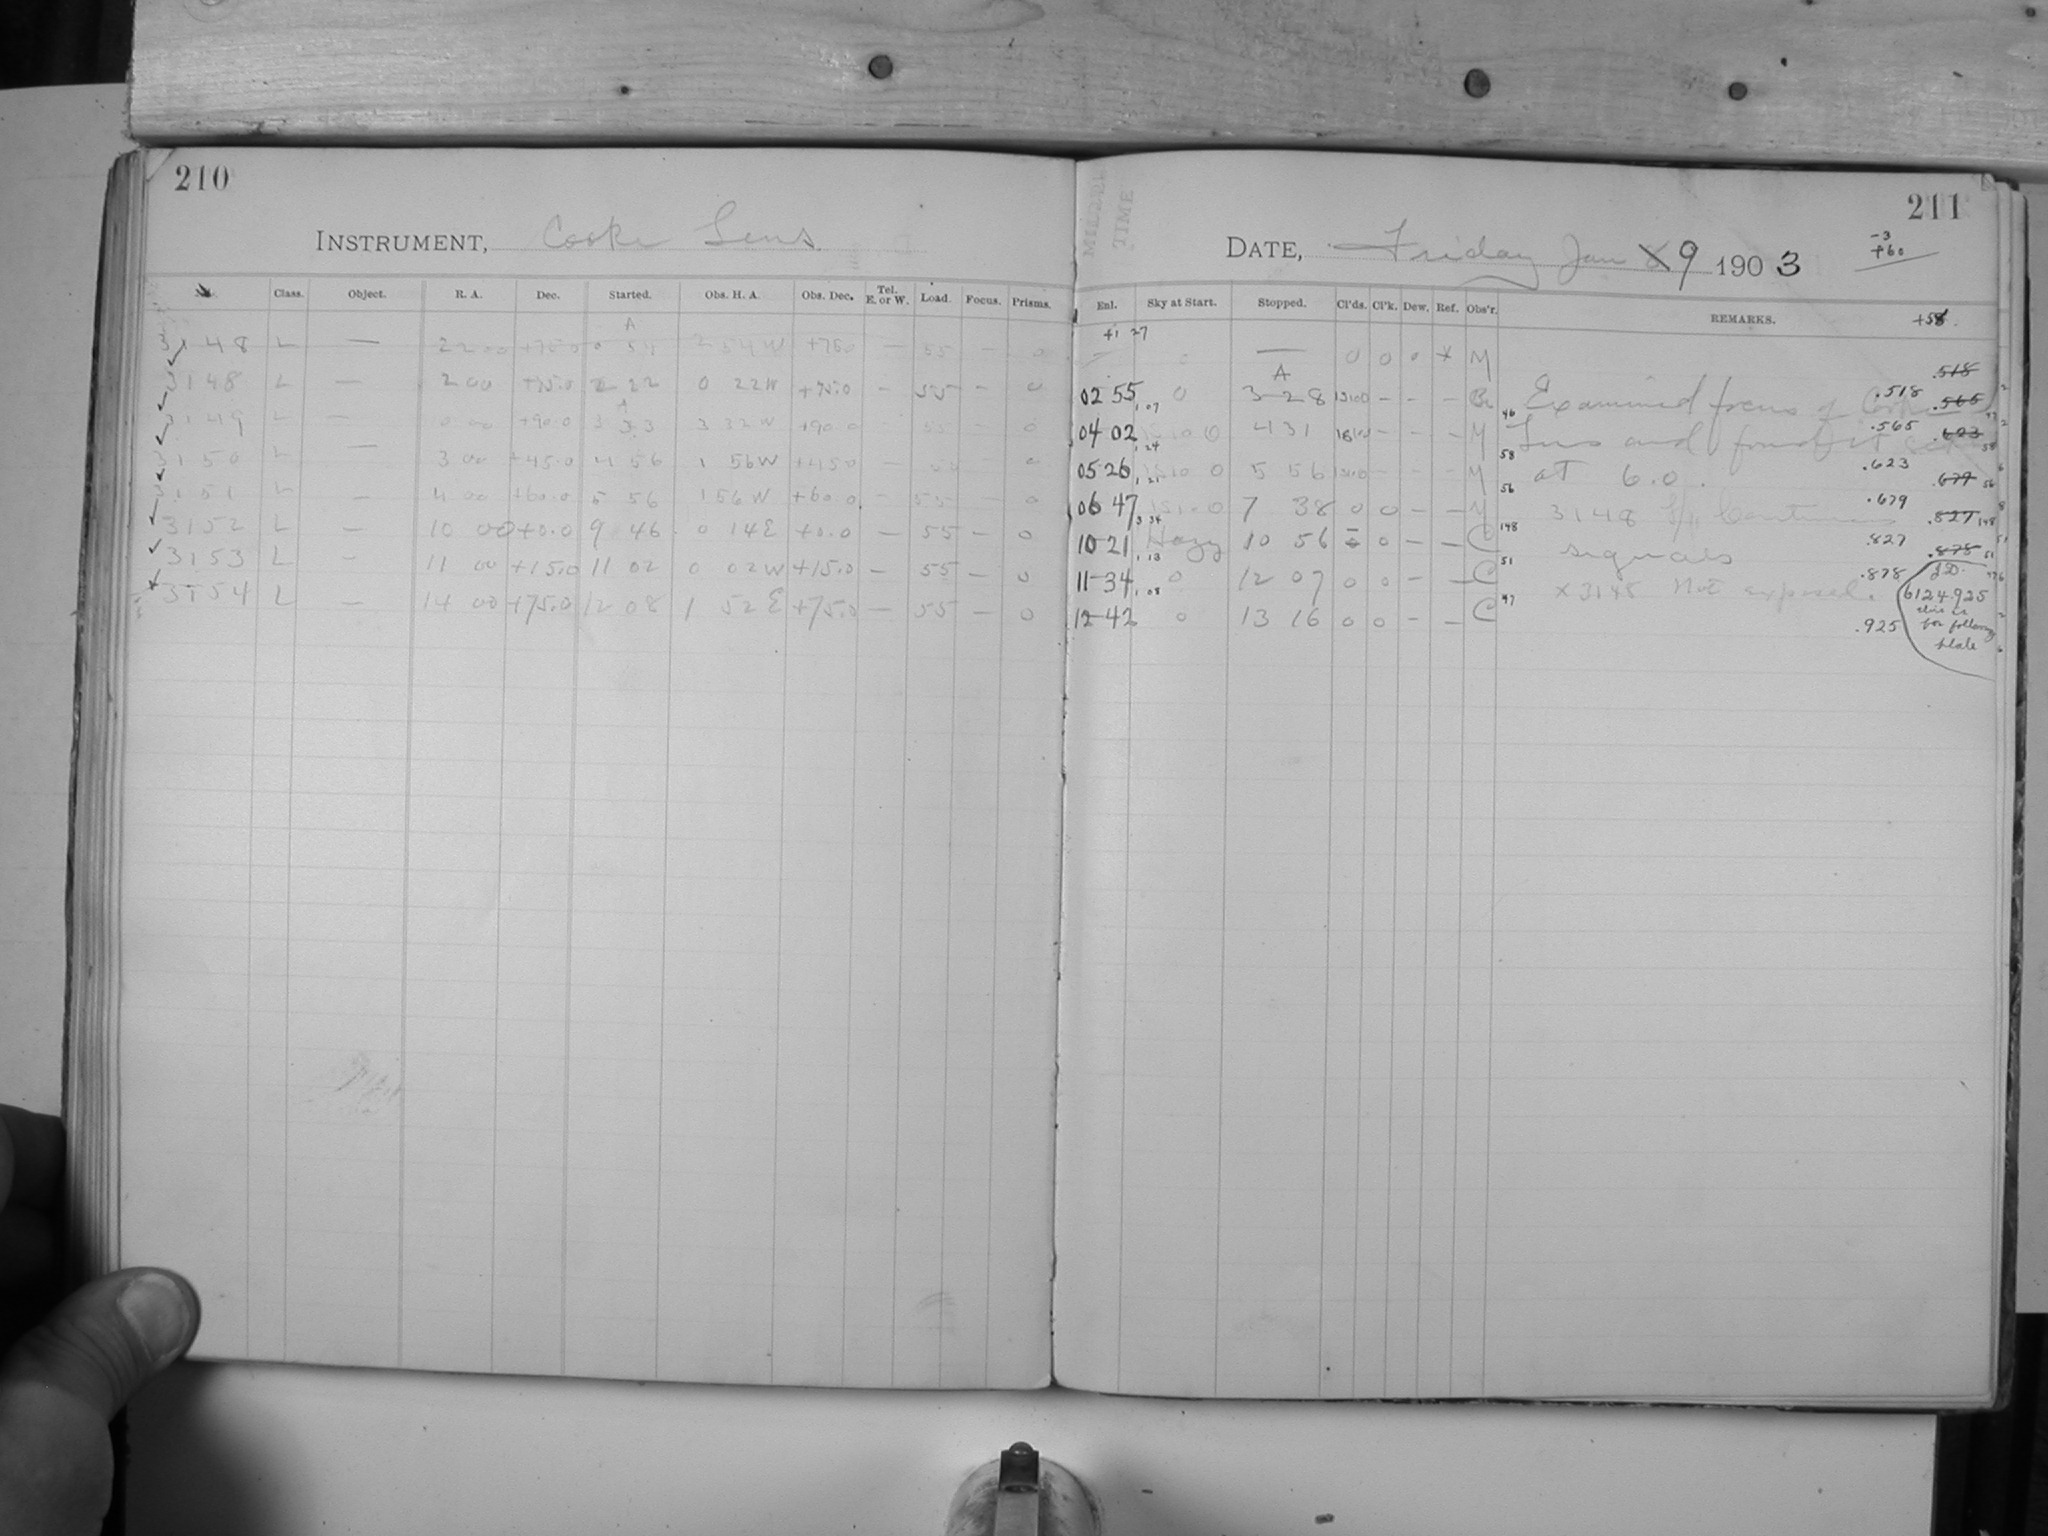 210
INSTRUMENT, Cooke Lens
No. Class. Object. R. A. Dec. Started. Obs. H. A. Obs. Dec. Tel. E. or W. Load. Focus. Prisms.
A
3148 L — +75.0 0 54 2 54 W +75.0 — 55 — 0
3148 L — 2 00 +75.0 2 22 0 22 W +75.0 — 55 — 0
A
3149 L — 0 00 +90.0 3 33 3 32 W +90.0 55 0
3150 L — 3 00 +45.0 4 56 1 56 W +45.0 — 55 0
3151 L — 4 00 +60.0 5 56 1 56 W +60.0 — 55 — 0
3152 L — 10 00 +0.0 9 46 0 14 E +0.0 — 55 — 0
3153 L — 11 00 +15.0 11 02 0 02 W +15.0 — 55 — 0
3154 L — 14 00 +75.0 12 08 1 52 E +75.0 — 55 — 0
TIME
211
DATE, Friday Jan 8 9 1903
-3
+60
Enl. Sky at Start. Stopped. Cl'ds. Cl'k. Dew. Ref. Obs'r. REMARKS.
+1 27
— 0 — 0 0 0 x M
.518
A
02 55 0 3 28 — — — Examined focus of Cooke .518 .565
1.07 46
04 02 0 4 31 — — — M Lens and found it .565 .623
1.24 58
05 26 0 5 56 — — — M at 6.0. .623 .679
1.21 56
06 47 0 7 38 0 0 — — M 3148 .679 .827 148
3 34 148
10 21 Hazy 10 56 0 — — C signals .827 .878 51
1.13 51
11 34 0 12 07 0 0 — — C x 3148 Not exposed. .878
1.08 47
12 42 0 13 16 0 0 — — C .925
J.D.
6124.925
this is
for following
plate